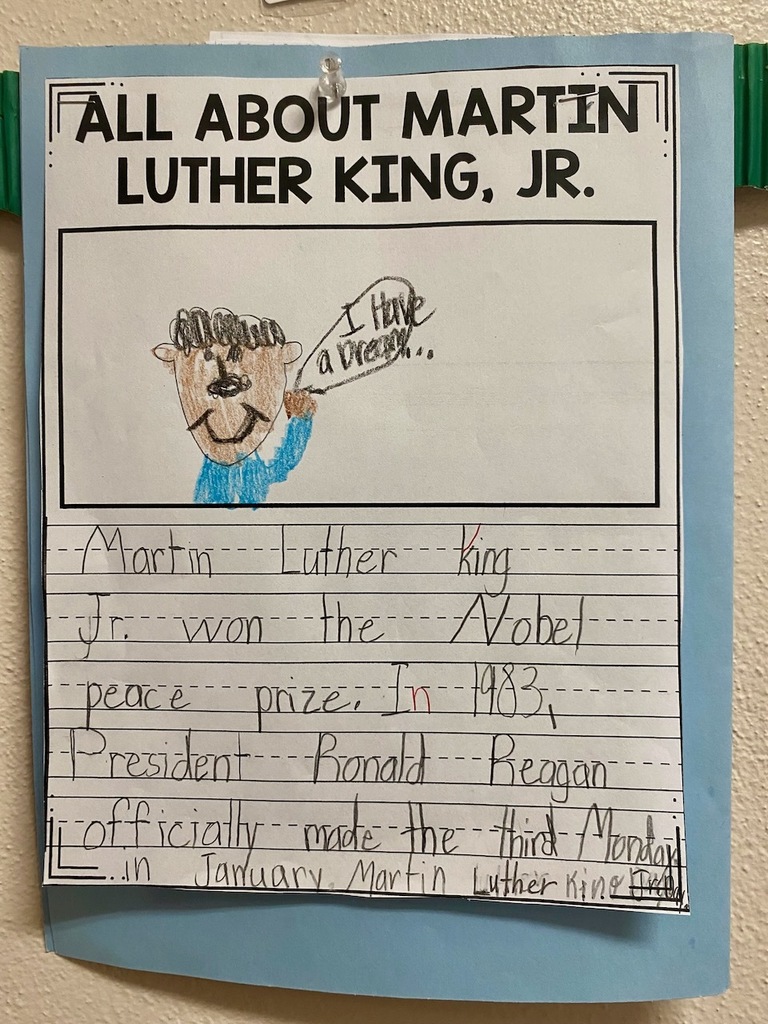 ALL ABOUT MARTIN
LUTHER KING, JR.
I Have
a Dream...
Martin Luther king
Jr. won the Nobel
peace prize. In 1983,
President Ronald Reagan
officially made the third Monday
in January Martin Luther King Jr.